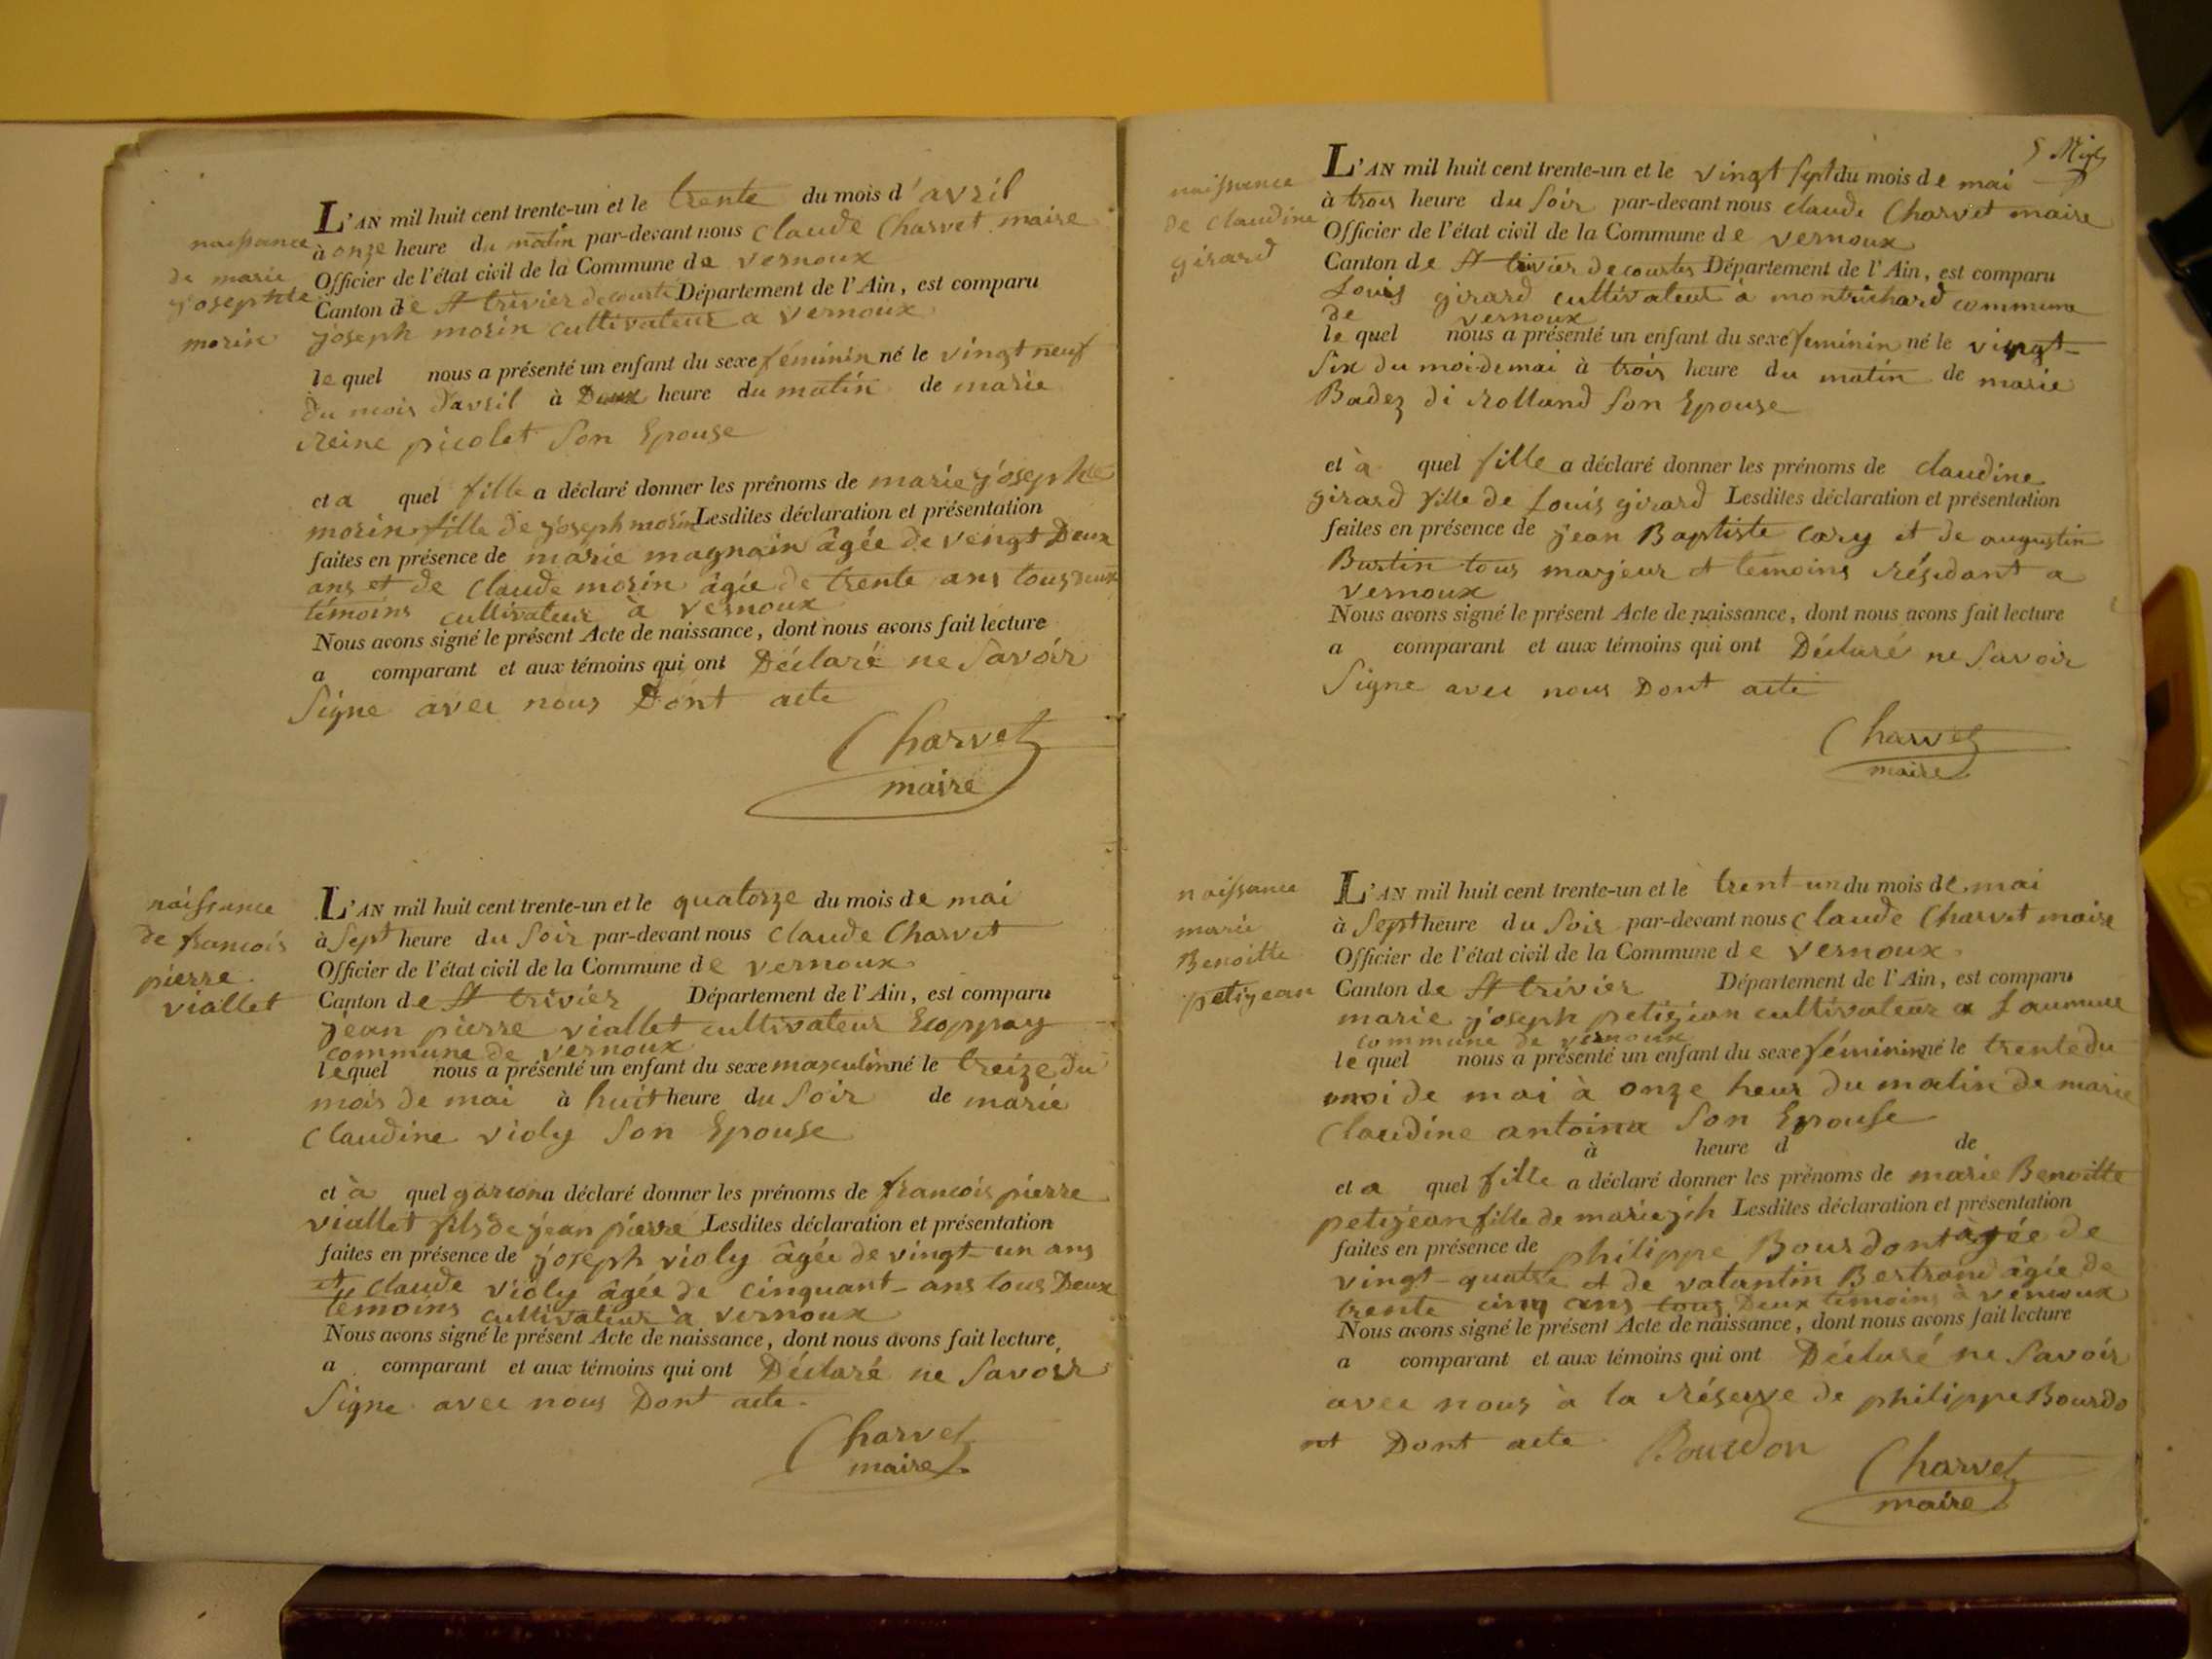 naissance
de marie
josephte
morin
L'AN mil huit cent trente-un et le trente du mois d'avril
à onze heure du matin par-devant nous Claude Charvet maire
Officier de l'état civil de la Commune de vernoux
Canton de St trivier de courte Département de l'Ain, est comparu
joseph morin cultivateur a vernoux
le quel nous a présenté un enfant du sexe féminin né le vingt neuf
du mois d'avril à Deux heure du matin de marie
Reine picolet Son Epouse
et a quel fille a déclaré donner les prénoms de marie josephte
morin fille de joseph morin Lesdites déclaration et présentation
faites en présence de marie magnain âgée de vengt Deux
ans et de Claude morin âgée de trente ans tous Deux
témoins cultivateur à vernoux
Nous avons signé le présent Acte de naissance, dont nous avons fait lecture
a comparant et aux témoins qui ont Déclaré ne Savoir
Signe avec nous Dont acte
Charvet
maire
naissance
de francois
pierre
viallet
L'AN mil huit cent trente-un et le quatorze du mois de mai
à Sept heure du Soir par-devant nous Claude Charvet
Officier de l'état civil de la Commune de vernoux
Canton de St trivier Département de l'Ain, est comparu
jean pierre viallet cultivateur Ecoppay
commune de vernoux
le quel nous a présenté un enfant du sexe masculin né le treize du
mois de mai à huit heure du Soir de marie
Claudine violy Son Epouse
et à quel garcon a déclaré donner les prénoms de francois pierre
viallet fils de jean pierre Lesdites déclaration et présentation
faites en présence de joseph violy âgée de vingt-un ans
et Claude violy âgée de cinquant-ans tous Deux
témoins cultivateur à vernoux
Nous avons signé le présent Acte de naissance, dont nous avons fait lecture,
a comparant et aux témoins qui ont Déclaré ne Savoir
Signe avec nous Dont acte.
Charvet
maire
5
naissance
de Claudine
girard
L'AN mil huit cent trente-un et le vingt Sept du mois de mai
à trois heure du Soir par-devant nous Claude Charvet maire
Officier de l'état civil de la Commune de vernoux
Canton de St trivier de courtes Département de l'Ain, est comparu
Louis girard cultivateur à montrichard commune
de vernoux
le quel nous a présenté un enfant du sexe feminin né le vingt-
Six du moi de mai à trois heure du matin de marie
Badez di Rolland Son Epouse
et à quel fille a déclaré donner les prénoms de claudine
girard fille de Louis girard Lesdites déclaration et présentation
faites en présence de jean Baptiste cary et de augustin
Burtin tous marjeur et temoins résidant a
vernoux
Nous avons signé le présent Acte de naissance, dont nous avons fait lecture
a comparant et aux témoins qui ont Déclaré ne Savoir
Signe avec nous Dont acte
Charvet
maire
naissance
marie
Benoitte
petijean
L'AN mil huit cent trente-un et le trent-un du mois de mai
à Sept heure du Soir par-devant nous Claude Charvet maire
Officier de l'état civil de la Commune de vernoux
Canton de St trivier Département de l'Ain, est comparu
marie joseph petijean cultivateur a
commune de vernoux
le quel nous a présenté un enfant du sexe féminin né le trente du
moi de mai à onze heur du matin de marie
Claudine antoina Son Epouse
à heure d de
et a quel fille a déclaré donner les prénoms de marie Benoitte
petijean fille de marie jph Lesdites déclaration et présentation
faites en présence de philippe Bourdont âgée de
vingt-quatre et de valantin Bertrand âgée de
trente cinq ans tous Deux témoins à vernoux
Nous avons signé le présent Acte de naissance, dont nous avons fait lecture
a comparant et aux témoins qui ont Déclaré ne Savoir
avec nous à la réserve de philippe Bourdo
nt Dont acte Bourdon
Charvet
maire